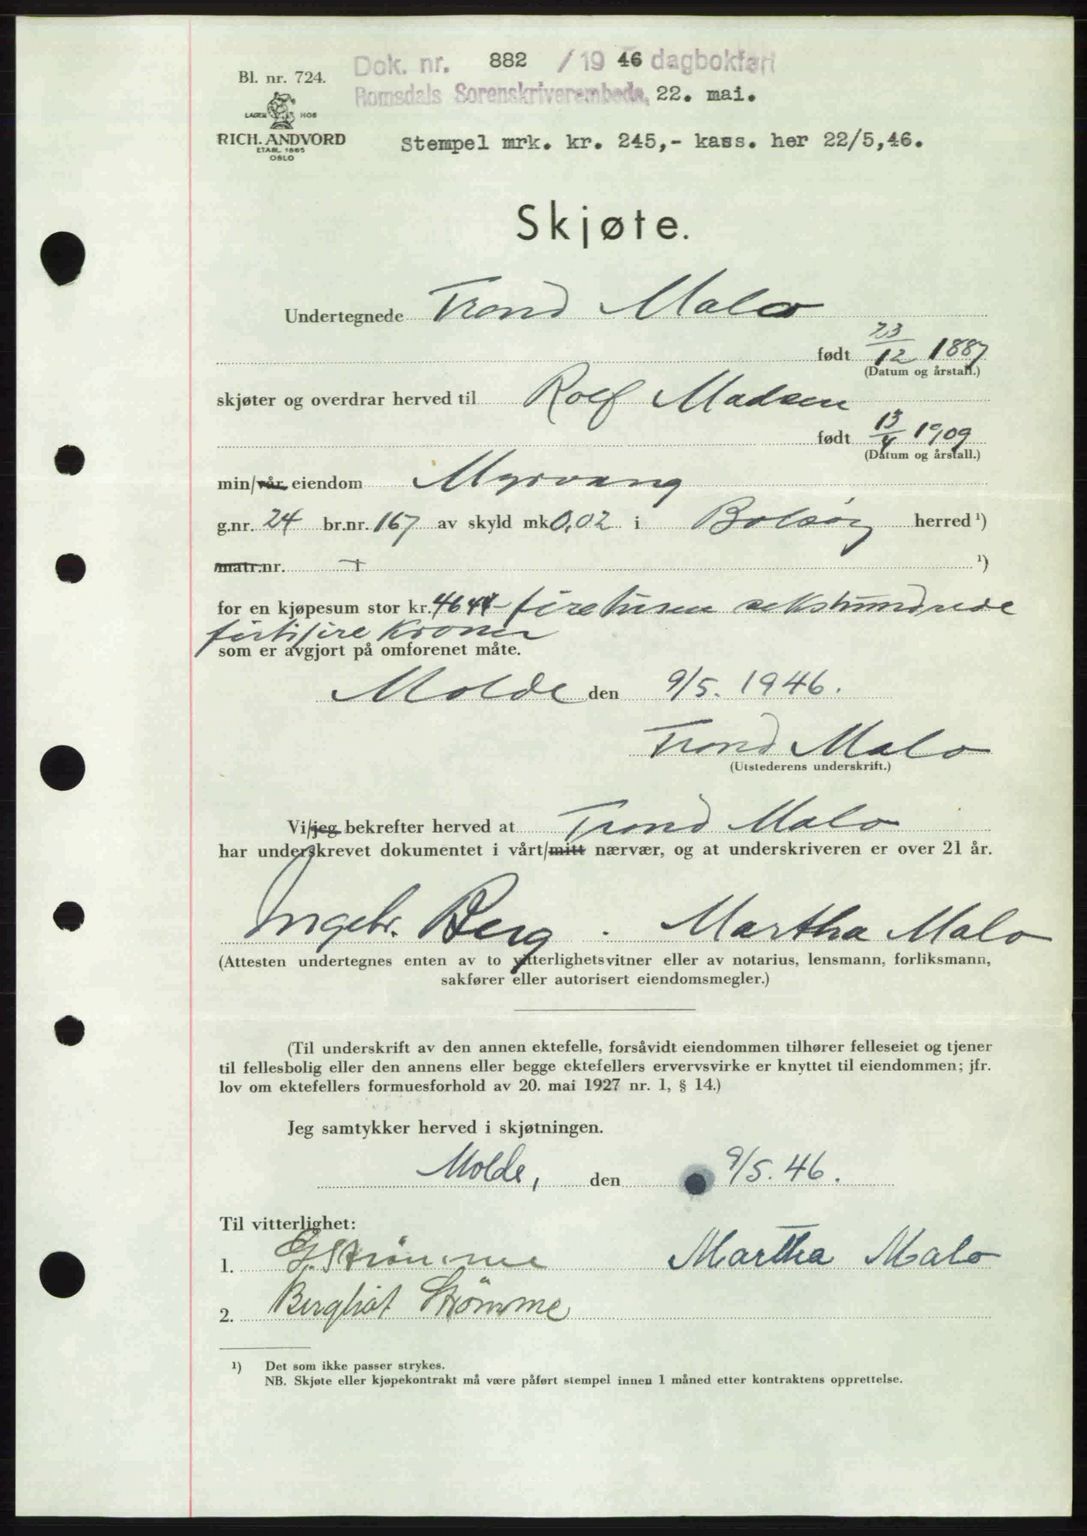 Dok. nr. 882 / 19 46 dagbokført
Bl. nr. 724.
Romsdals Sorenskriverembede, 22. mai.
LAGER HOS
RICH. ANDVORD
ETABL. 1865
OSLO
Stempel mrk. kr. 245,- kass. her 22/5,46.
Skjøte.
Undertegnede Trond Malo
født 23/12 1887
(Datum og årstall.)
skjøter og overdrar herved til Rolf Madsen
født 13/4 1909
(Datum og årstall.)
min/vår eiendom Myrvang
g.nr. 24 br.nr. 167 av skyld mk 0,02 i Bolsøy herred ¹)
matr.nr. ¹)
for en kjøpesum stor kr. 4644- firetusen sekshundrede
førtifire kroner
som er avgjort på omforenet måte.
Molde den 9/5. 1946.
Trond Malo
(Utstederens underskrift.)
Vi/jeg bekrefter herved at Trond Malo
har underskrevet dokumentet i vårt/mitt nærvær, og at underskriveren er over 21 år.
Ingebr. Berg . Martha Malo
(Attesten undertegnes enten av to vitterlighetsvitner eller av notarius, lensmann, forliksmann,
sakfører eller autorisert eiendomsmegler.)
(Til underskrift av den annen ektefelle, forsåvidt eiendommen tilhører felleseiet og tjener
til fellesbolig eller den annens eller begge ektefellers ervervsvirke er knyttet til eiendommen; jfr.
lov om ektefellers formuesforhold av 20. mai 1927 nr. 1, § 14.)
Jeg samtykker herved i skjøtningen.
Molde, den 9/5. 46.
Til vitterlighet:
1. G. Strømme Martha Malo
2. Bergliot Strømme
¹) Det som ikke passer strykes.
NB. Skjøte eller kjøpekontrakt må være påført stempel innen 1 måned etter kontraktens opprettelse.